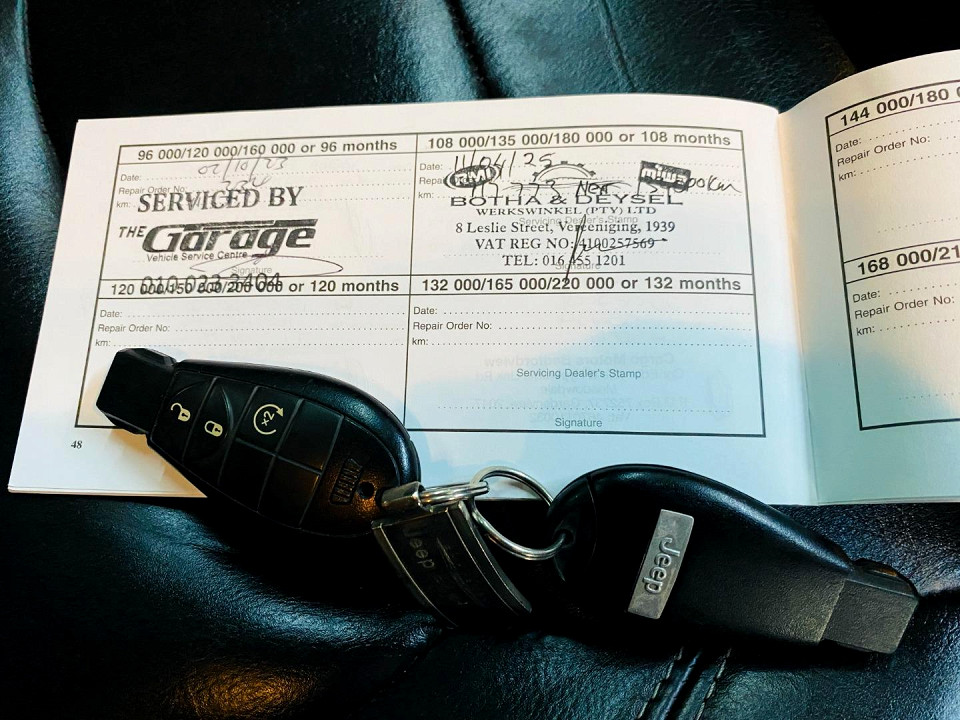 96 000/120 000/160 000 or 96 months
Date: 02/10/23
Repair Order No:
km:
SERVICED BY
THE Garage
Vehicle Service Centre
Signature
108 000/135 000/180 000 or 108 months
Date: 11/04/25
RMI
miwa
BOTHA & DEYSEL
Servicing Dealer's Stamp
WERKSWINKEL (PTY) LTD
8 Leslie Street, Vereeniging, 1939
VAT REG NO: 4100257569
TEL: 016 455 1201
Signature
120 000/150 000/200 000 or 120 months
Date:
Repair Order No:
km:
132 000/165 000/220 000 or 132 months
Date:
Repair Order No:
km:
Servicing Dealer's Stamp
Signature
48
144 000/180
Date:
Repair Order No:
km:
168 000/21
Date:
Repair Order No:
km:
x2
Jeep
Jeep